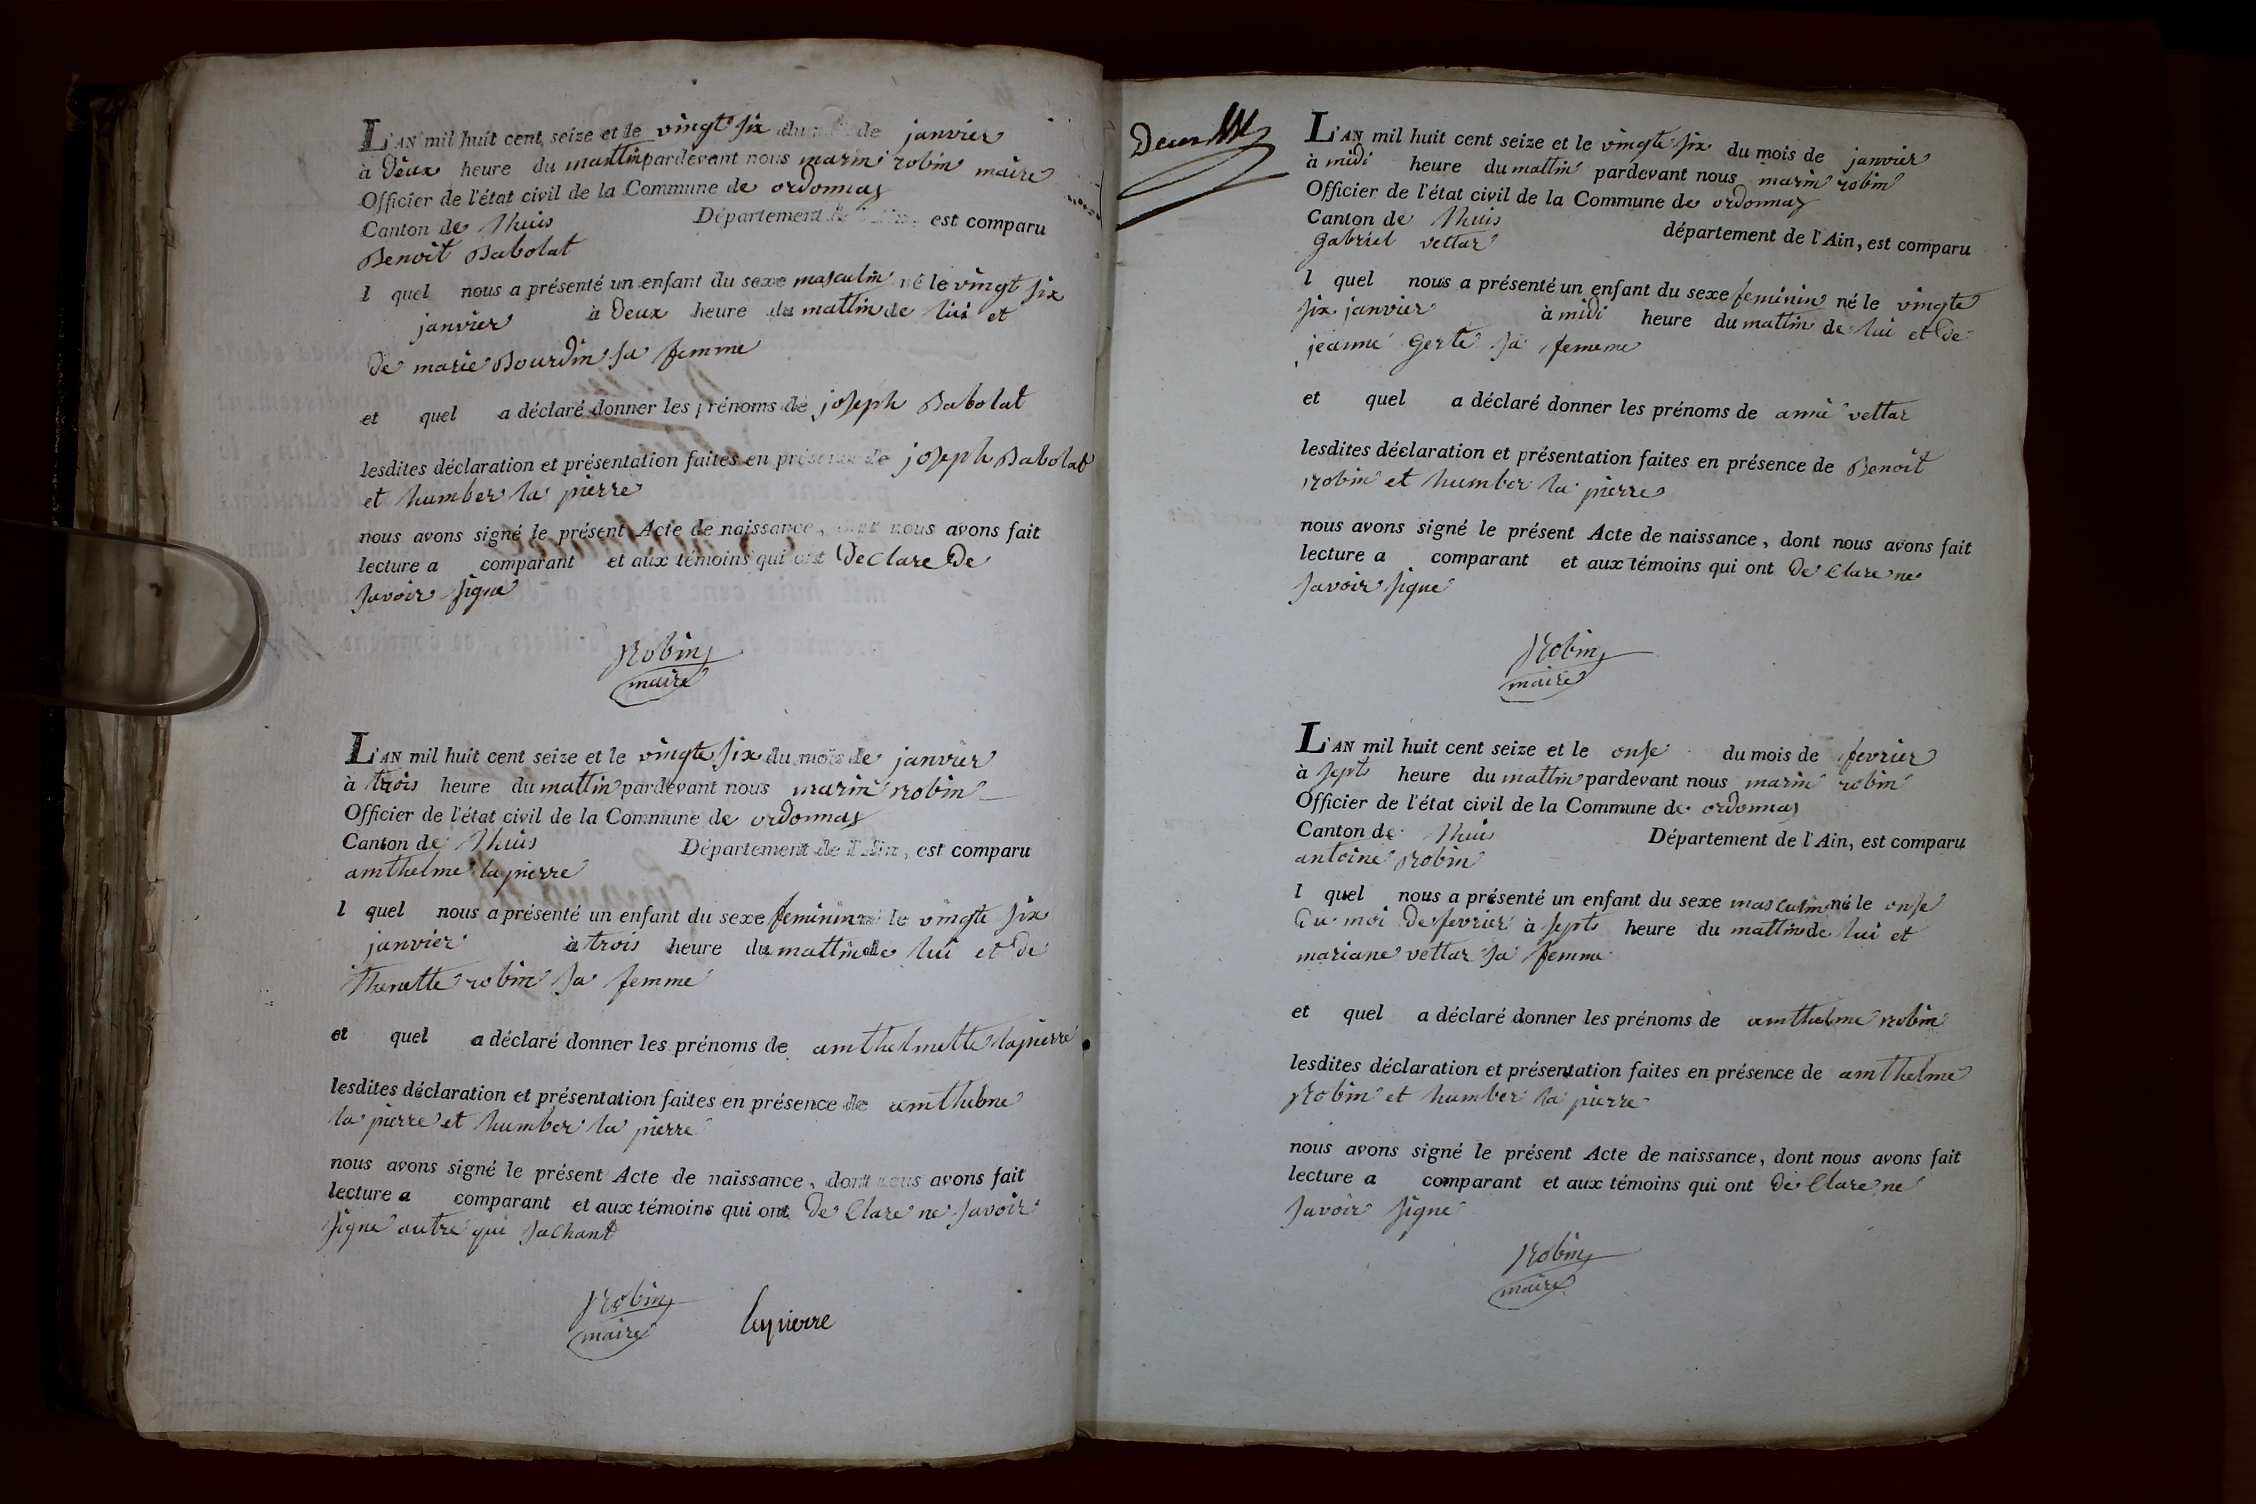 L'AN mil huit cent seize et le vingt six du mois de janvier
à Deux heure du mattin pardevant nous marin robin maire
Officier de l'état civil de la Commune de ordonnay
Canton de Lhuis Département de l'Ain, est comparu
Benoit Babolat
l quel nous a présenté un enfant du sexe masculin né le vingt six
janvier à Deux heure du mattin de lui et
de marie Bourdin sa femme
et quel a déclaré donner les prénoms de joseph Babolat
lesdites déclaration et présentation faites en présence de joseph Babolat
et humber la pierre
nous avons signé le présent Acte de naissance, dont nous avons fait
lecture a comparant et aux témoins qui ont Declare De
savoir signe
Robin
maire
L'AN mil huit cent seize et le vingte six du mois de janvier
à trois heure du mattin pardevant nous marin robin
Officier de l'état civil de la Commune de ordonnay
Canton de Lhuis Département de l'Ain, est comparu
amthelme la pierre
l quel nous a présenté un enfant du sexe feminin né le vingte six
janvier à trois heure du mattin de lui et de
robin sa femme
et quel a déclaré donner les prénoms de amthelmette lapierre
lesdites déclaration et présentation faites en présence de amthelme
la pierre et humber la pierre
nous avons signé le présent Acte de naissance, dont nous avons fait
lecture a comparant et aux témoins qui ont De Clare ne savoir
signe autre qui sachant
Robin
maire
lapierre
Deux
L'AN mil huit cent seize et le vingte six du mois de janvier
à midi heure du mattin pardevant nous marin robin
Officier de l'état civil de la Commune de ordonnay
Canton de Lhuis département de l'Ain, est comparu
gabriel vettar
l quel nous a présenté un enfant du sexe feminin né le vingte
six janvier à midi heure du mattin de lui et de
jeanne gerte sa fememe
et quel a déclaré donner les prénoms de anne vettar
lesdites déclaration et présentation faites en présence de Benoit
robin et humber la pierre
nous avons signé le présent Acte de naissance, dont nous avons fait
lecture a comparant et aux témoins qui ont De Clare ne
savoir signe
Robin
maire
L'AN mil huit cent seize et le onse du mois de fevrier
à septs heure du mattin pardevant nous marin robin
Officier de l'état civil de la Commune de ordonnay
Canton de Lhuis Département de l'Ain, est comparu
antoine Robin
l quel nous a présenté un enfant du sexe masculin né le onse
Du moi De fevrier à septs heure du mattin de lui et
mariane vettar sa femme
et quel a déclaré donner les prénoms de amthelme robin
lesdites déclaration et présentation faites en présence de amthelme
Robin et humber la pierre
nous avons signé le présent Acte de naissance, dont nous avons fait
lecture a comparant et aux témoins qui ont De Clare ne
savoir signe
Robin
maire